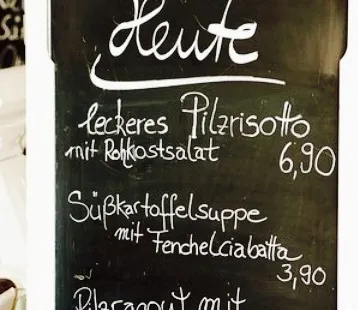 Heute
leckeres Pilzrisotto
mit Rohkostsalat 6,90
Süßkartoffelsuppe
mit Fenchelciabatta
3,90
Pilzragout mit